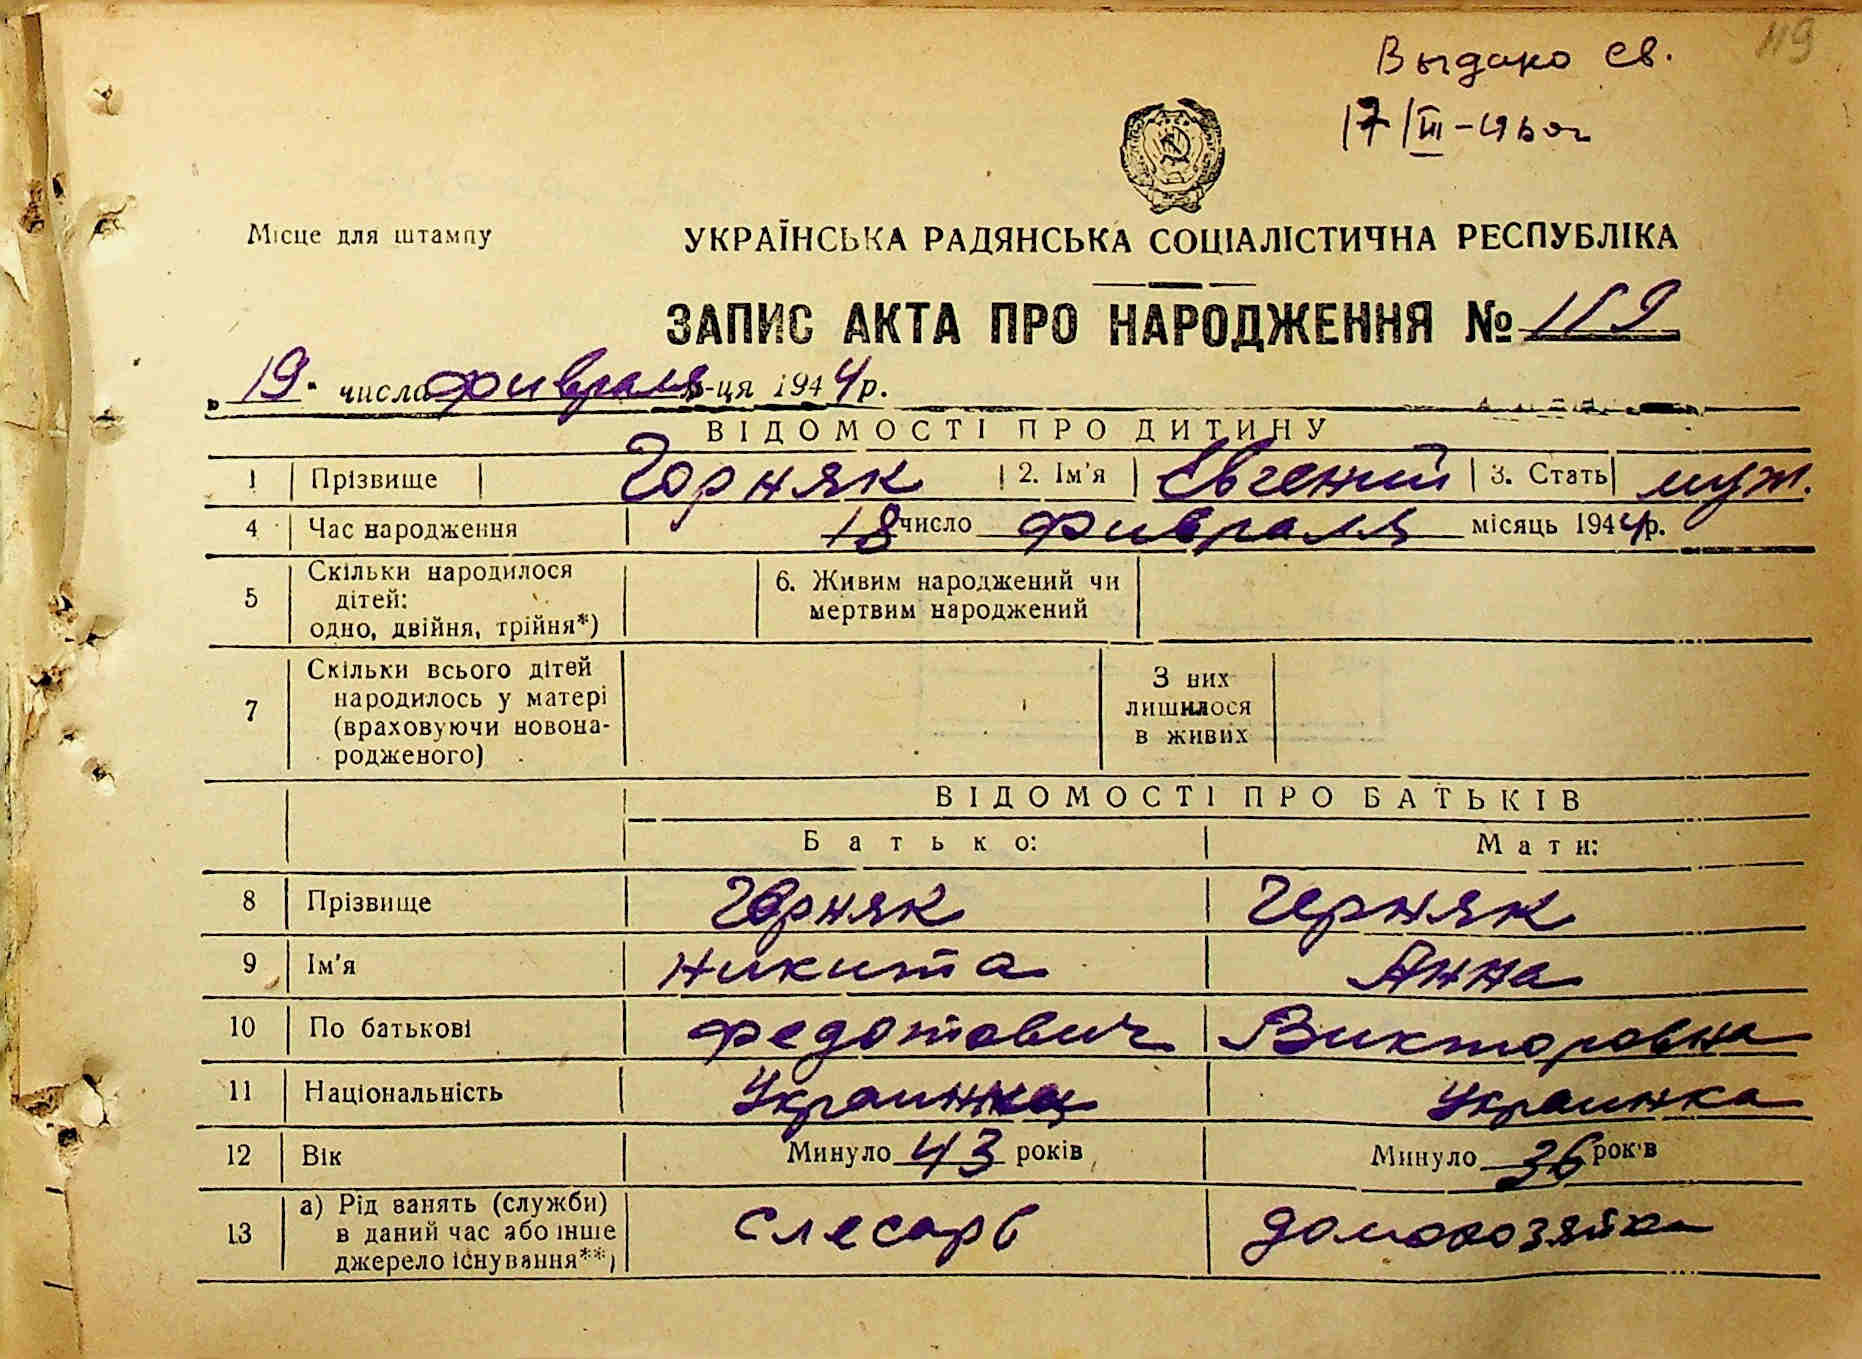 119
Выдано св.
17/III-1960г
Місце для штампу
УКРАЇНСЬКА РАДЯНСЬКА СОЦІАЛІСТИЧНА РЕСПУБЛІКА
ЗАПИС АКТА ПРО НАРОДЖЕННЯ № 119
„19" числа февраля м-ця 1944 р.
ВІДОМОСТІ ПРО ДИТИНУ
1 Прізвище Чорняк 2. Ім'я Евгений 3. Стать муж.
4 Час народження 18 число февраля місяць 1944 р.
5 Скільки народилося дітей: одно, двійня, трійня*) 6. Живим народжений чи мертвим народжений
7 Скільки всього дітей народилось у матері (враховуючи новонародженого) З них лишилося в живих
ВІДОМОСТІ ПРО БАТЬКІВ
Батько: Мати:
8 Прізвище Чорняк Черняк
9 Ім'я Никита Анна
10 По батькові Федотович Викторовна
11 Національність Украинец Украинка
12 Вік Минуло 43 років Минуло 36 років
13 а) Рід занять (служби) в даний час або інше джерело існування**) Слесарь домохозяйка